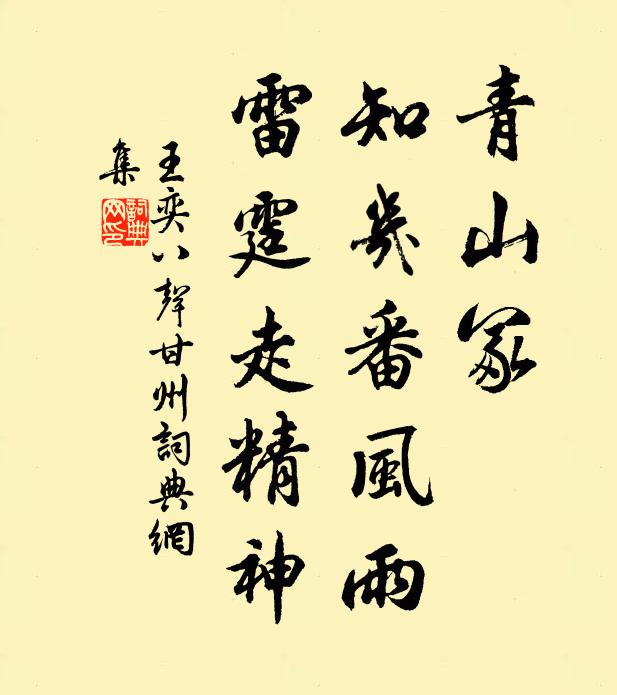 青山冢
知幾番風雨
雷霆走精神
王奕八聲甘州詞典網
集
詞典網印